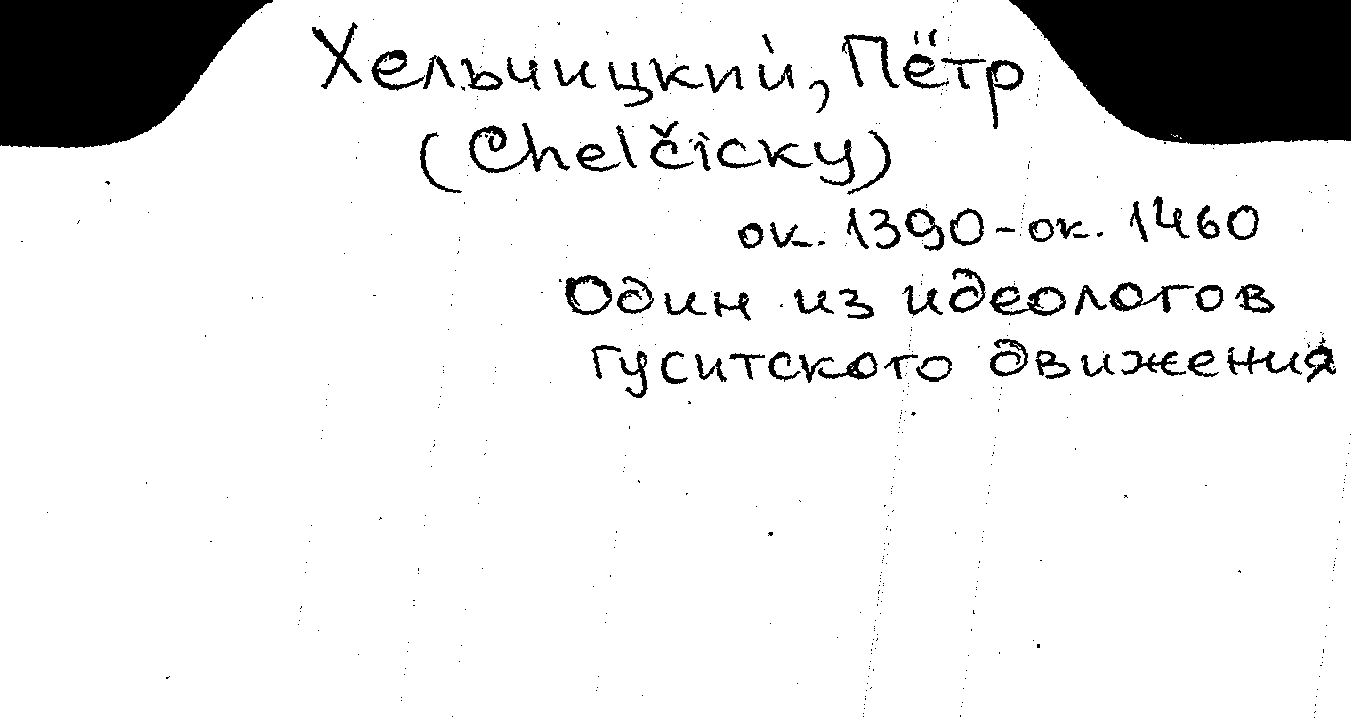 Хельчицкий, Пётр
(Chelčicky)
ок. 1390-ок. 1460
Один из идеологов
гуситского движения